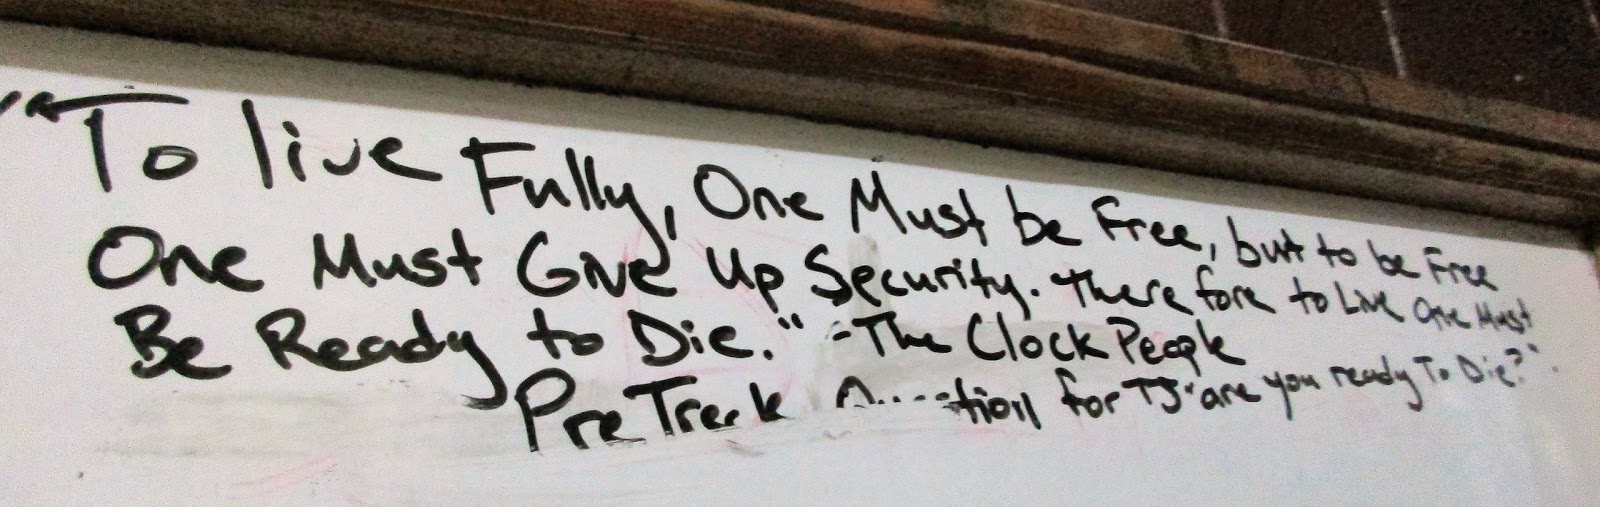 "To live Fully, One Must be Free, but to be Free
One Must Give Up Security. Therefore to Live One Must
Be Ready to Die." - The Clock People
Pre Treck for TJ "are you ready To Die?".